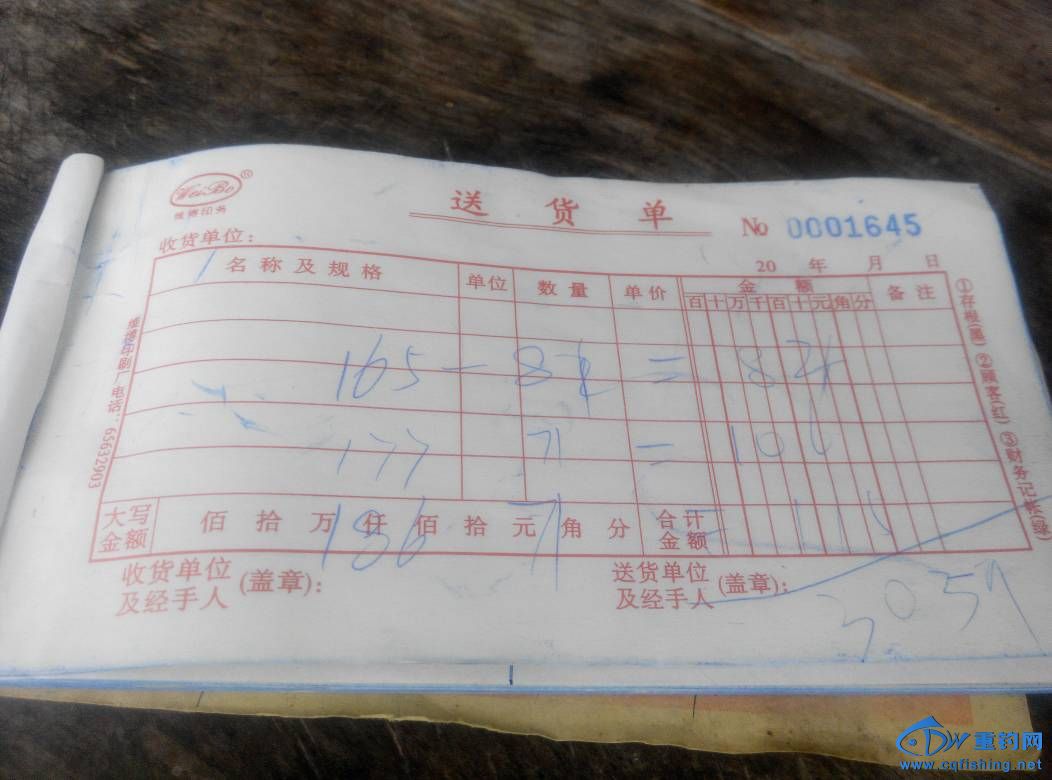 WeiBo®
维博印务
送 货 单
No 0001645
收货单位:
20 年 月 日
名称及规格 单位 数量 单价 金额 备注
百十万千百十元角分
165 - 8 = 84
177 71 = 106
186 71 = 115
大写金额 佰 拾 万 仟 佰 拾 元 角 分 合计金额
3059
收货单位及经手人 (盖章):
送货单位及经手人 (盖章):
①存根(黑) ②顾客(红) ③财务记帐(绿)
印刷厂 电话:65632903
重钓网
www.cqfishing.net